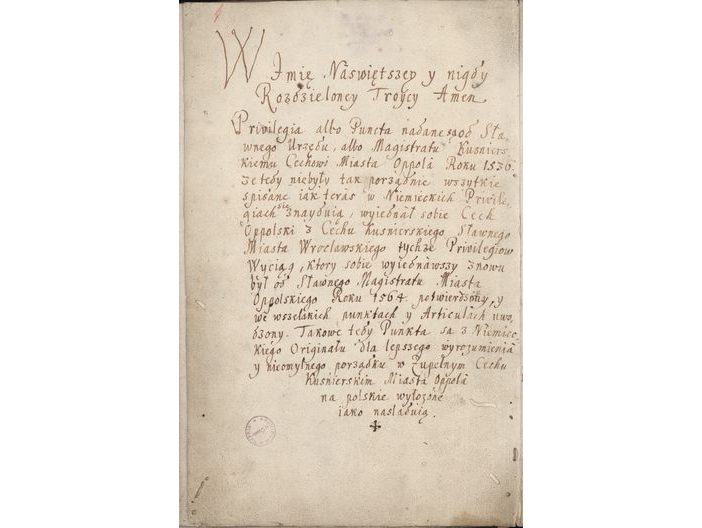 W Imię Náswiętszey y nigdy
Rozdzieloney Troycy Amen
Privilegia albo Puncta nadane są od Sła
wnego Urzędu, albo Magistratu Kusniers
kiemu Cechowi Miasta Oppola Roku 1536.
Ze tedy niebyły tak porządnie wszytkie
spisane iak teras w Niemieckich Privile
giach się znayduią, wyiednał sobie Cech
Oppolski z Cechu Kusnierskiego Sławnego
Miasta Wrocławskiego tychże Privilegiow
Wyciąg, ktory sobie wyiednawszy znowu
był od Sławnego Magistratu Miasta
Oppolskiego Roku 1564. potwierdzony, y
we wszelakich punktach y Articulach uwo
dzony. Takowe tedy Punkta są z Niemiec
kiego Originału dla lepszego wyrozumienia
y nieomylnego porządku w Zupełnym Cechu
Kusnierskim Miasta Oppola
na polskie wyłożone
iako nasladuią.